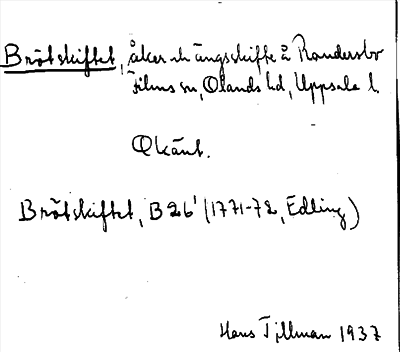 Brötskiftet, åker och ängsskifte å Randersbo
Films sn, Olands hd, Uppsala l.
Okänt.
Brötskiftet, B 26¹ (1771-72, Edling)
Hans Tillman 1937